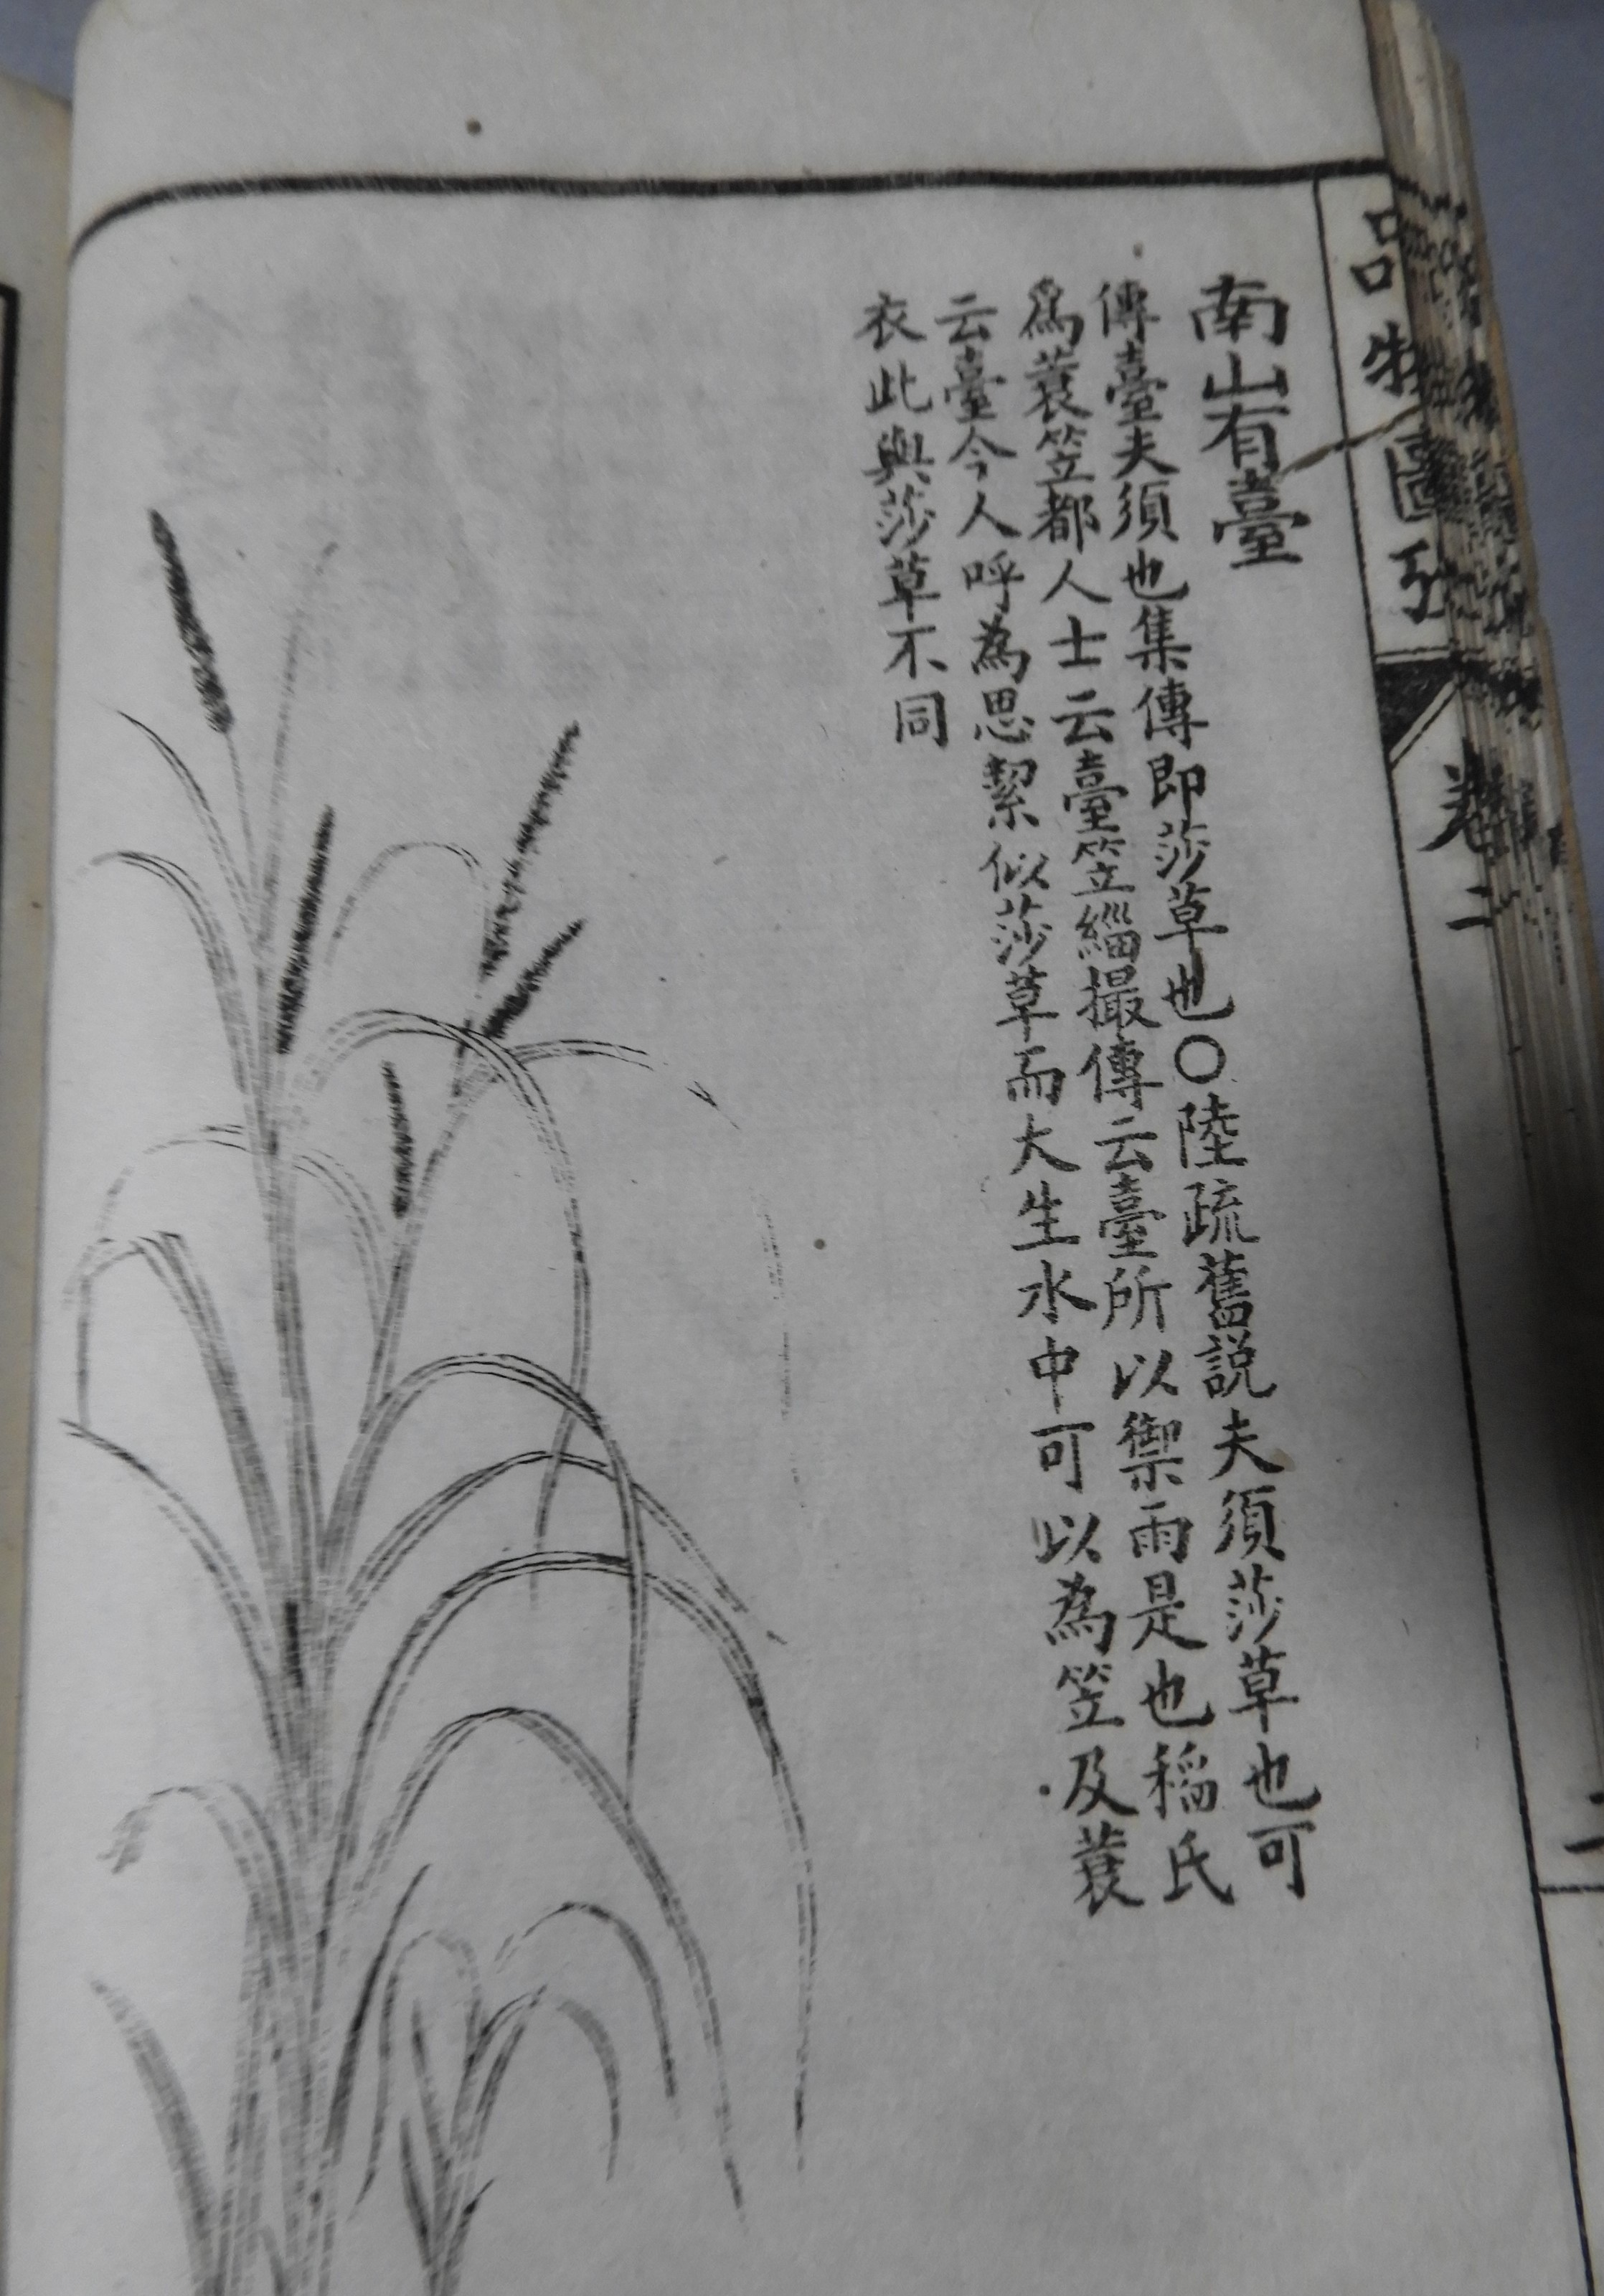 品物圖攷
卷二
二
南山有臺
傳臺夫須也集傳即莎草也〇陸疏舊説夫須莎草也可
爲蓑笠都人士云臺笠緇撮傳云臺所以禦雨是也稻氏
云臺今人呼為思絜似莎草而大生水中可以為笠及蓑
衣此與莎草不同